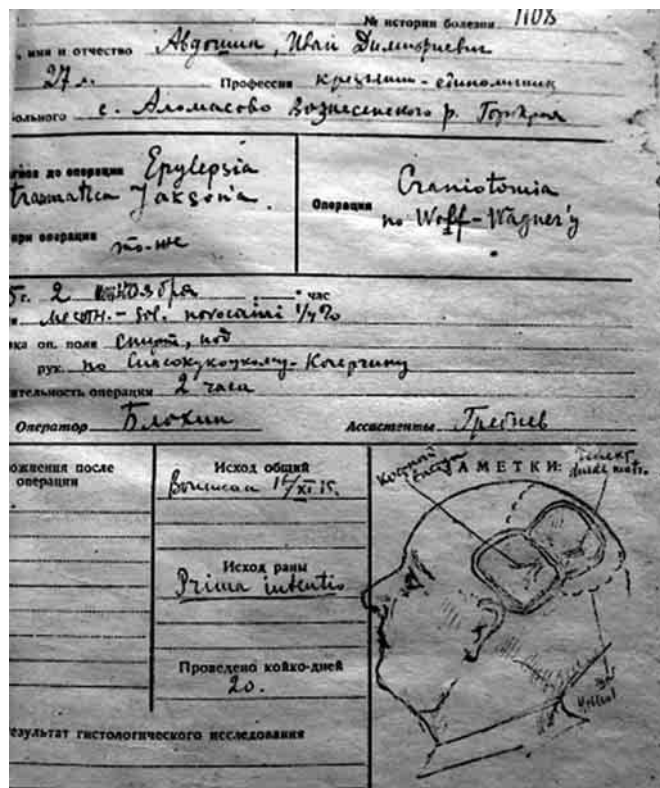 № истории болезни 1108
, имя и отчество Авдошин, Иван Димитриевич
27 л. Профессия крестьянин-единоличник
ольного с. Аломасово Вознесенского р. Горькрая
до операции Epylepsia
traumatica Jakson'a.
при операции то-же
Операция Craniotomia
по Wolff-Wagner'y
5 г. 2 ноября час
местн.- Sol. novocaini 1/4 %
ка оп. поля спирт, иод
рук. по Спасокукоцкому-Кочергину
ительность операции 2 часа
Оператор Блохин Ассистенты Гребнев
ожнения после операции
Исход общий
16/XI 15.
Исход раны
Prima intentio
Проведено койко-дней
20.
езультат гистологического исследования
АМЕТКИ:
Костный